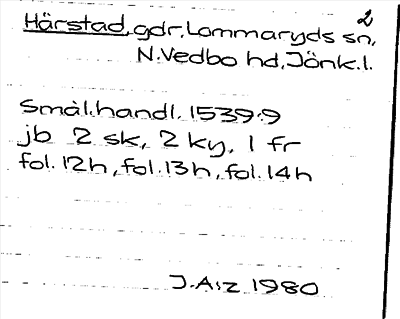 2
Härstad, gdr, Lommaryds sn,
N.Vedbo hd, Jönk.l.
Smål.handl. 1539:9
jb 2 sk, 2 ky, 1 fr
fol. 12h, fol. 13h, fol. 14h
J.A:z 1980